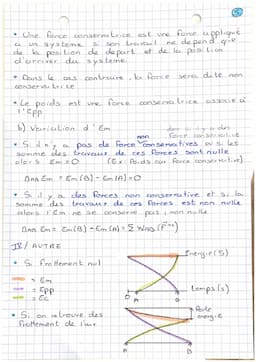 • Une force conservatrice est une force appliqué
à un système si son travail ne depend que
de la position de départ et de la position
d'arriver du système.
• Dans le cas contraire, la force sera dite non
conservatrice
• Le poids est une force conservatrice associé à
l'Epp
b) Variation d'Em
• S'il n'y a pas de force non conservatives ou si les
somme des travaux de ces forces sont nulle
alors Em = 0 (Ex: Poids car force conservative)
ΔAB Em = Em(B) - Em(A) = 0
• S'il y a des forces non conservative et si la
somme des travaux de ces forces est non nulle
alors l'Em ne se conserve pas, non nulle
ΔAB Em = Em(B) - Em(A) = Σ WAB (F nc)
IV/ AUTRE
• Si frottement nul
= Em
= Epp
= Ec
Energie (J)
Temps (s)
O A B
• Si, on retrouve des
frottement de l'air
Perte
energie
A B